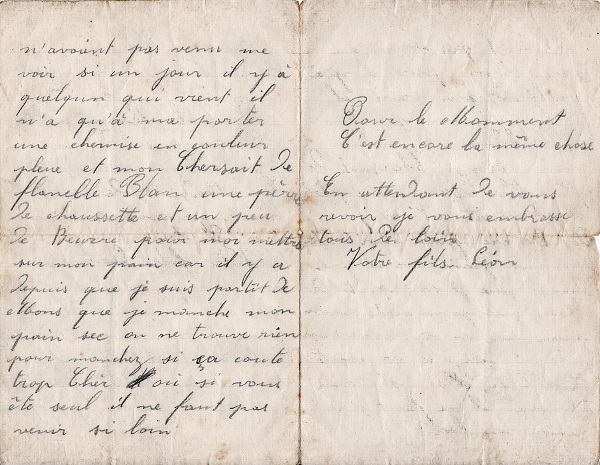 n'avaient pas venu me
voir si un jour il y à
quelqun qui vient il
n'a qu'à me porter
une chemise en couleur
pleue et mon Chersait de
flanelle Blan une père
de chaussette et un peu
de Beurre pour moi mettre
sur mon pain car il y a
depuis que je suis partit de
Mons que je manche mon
pain sec on ne trouve rien
pour manchez si ça coute
trop Chèr où si vous
ête seul il ne faut pas
venir si loin
Pour le Momment
C'est encore la même chose
En attendant de vous
revoir je vous embrasse
tous de loin
Votre fils Léon